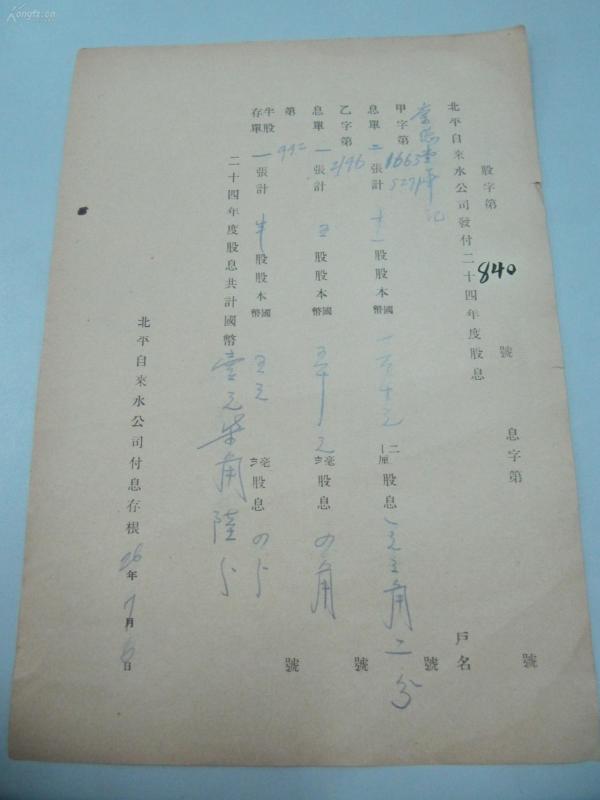 股字第 840 號 息字第 號
北平自來水公司發付二十四年度股息 戶名
甲字第 1663 號
息單二張計十一股股本國幣一百十元 二厘 股息一元三角二分
乙字第 2196 號
息單一張計五股股本國幣五十元 股息四角
第 992 號
半股存單一張計半股股本國幣五元 股息四分
二十四年度股息共計國幣壹元柒角陸分
北平自來水公司付息存根 26年7月6日